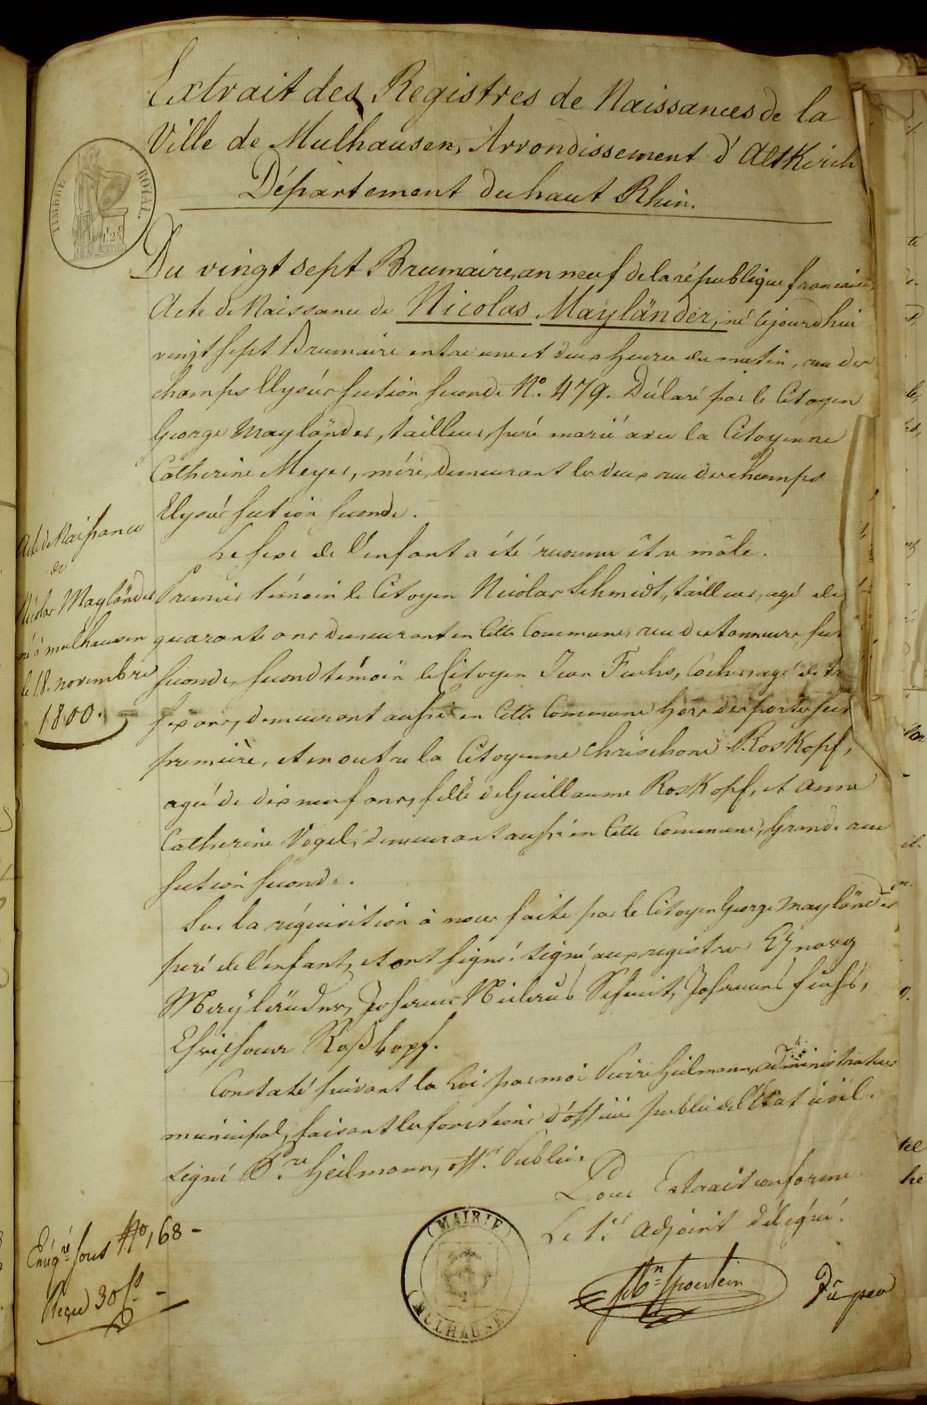 Extrait des Registres de Naissances de la
Ville de Mulhausen, Arrondissement d'Altkirch
Département du haut Rhin.
TIMBRE ROYAL
Du vingt sept Brumaire, an neuf de la république française
Acte de Naissance de Nicolas Mayländer, né cejourd'hui
vingt sept Brumaire entre une et deux heures du matin, rue des
champs Elysés section seconde No. 479. Déclaré par le Citoyen
George Mayländer, tailleur, peré marié avec la Citoyenne
Catherine Meyer, mére, demeurant les deux rue des champs
Elysés section seconde.
Le sexe de l'enfant a été reconnu être mâle.
Premier témoin le Citoyen Nicolas Schmidt, tailleur, agé de
quarante ans demeurant en cette Commune, rue des tonneurs
seconde, second témoin le Citoyen Jean Fuchs, Cocher agé de
six ans, demeurant aussi en cette Commune hors des portes
première, et en outre la Citoyenne Chrischona Roskopf,
agée de dix neuf ans, fille de Guillaume Roskopf, et Anna
Catherine Vogel, demeurant aussi en cette Commune, Grande rue
section seconde.
Sur la réquisition à nous faite par le Citoyen George Mayländer
peré de l'enfant, et ont signé. signé aux registres
Mayländer, Johannes Schmit, Johannes Fuchs,
Roßkopf.
Constaté suivant la Loi par moi Pierre Heilmann, administrateur
municipal, faisant les fonctions d'officier public de l'Etat civil.
signé Pre. Heilmann, off. Public.
Pour Extrait conforme
Le 1er adjoint délégué.
Acte de Naissance
de
Nicolas Mayländer
né à mulhausen
le 18. novembre
1800.
Enrgé sous No. 168 -
Reçu 30
MAIRIE
MULHAUSEN